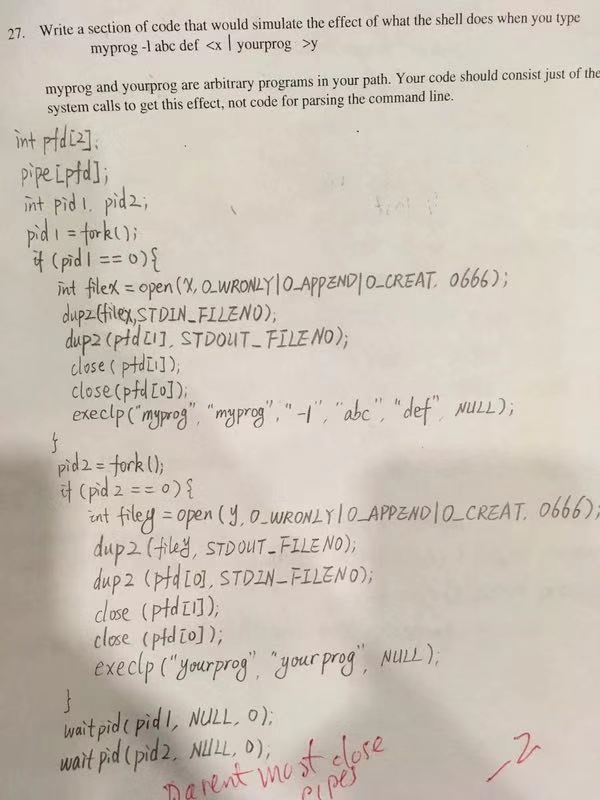 27. Write a section of code that would simulate the effect of what the shell does when you type
myprog -l abc def <x | yourprog >y
myprog and yourprog are arbitrary programs in your path. Your code should consist just of the
system calls to get this effect, not code for parsing the command line.
int pfd[2];
pipe[pfd];
int pid1, pid2;
pid1 = fork();
if (pid1 == 0){
int filex = open(X, O_WRONLY|O_APPEND|O_CREAT, 0666);
dup2(filex, STDIN_FILENO);
dup2(pfd[1], STDOUT_FILENO);
close(pfd[1]);
close(pfd[0]);
execlp("myprog", "myprog", "-l", "abc", "def", NULL);
}
pid2 = fork();
if (pid2 == 0){
int filey = open(y, O_WRONLY|O_APPEND|O_CREAT, 0666);
dup2(filey, STDOUT_FILENO);
dup2(pfd[0], STDIN_FILENO);
close(pfd[1]);
close(pfd[0]);
execlp("yourprog", "yourprog", NULL);
}
waitpid(pid1, NULL, 0);
waitpid(pid2, NULL, 0);
Parent must close
pipes
-2